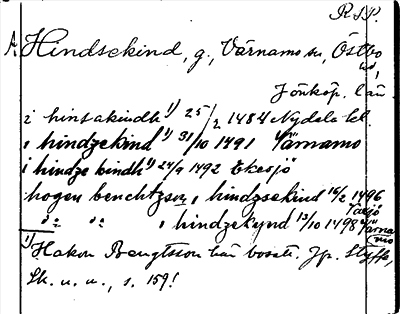 R.S.P.
A. Hindsekind, g., Värnamo sn, Östbo
hd,
Jönköp. län.
i hinsakindh 1) 25/2 1484 Nydala kl.
i hindzekind 1) 31/10 1491 Värnamo
i hindze kindh 1) 24/9 1492 Ekesjö
hogen benchtzson i hindzsekind 16/2 1496
Växjö
d:o d:o i hindzekynd 13/10 1498 Värna
mo
1) Hakon Bengtsson här bosatt. Jp. Styffe,
Sk. u. u., s. 159!